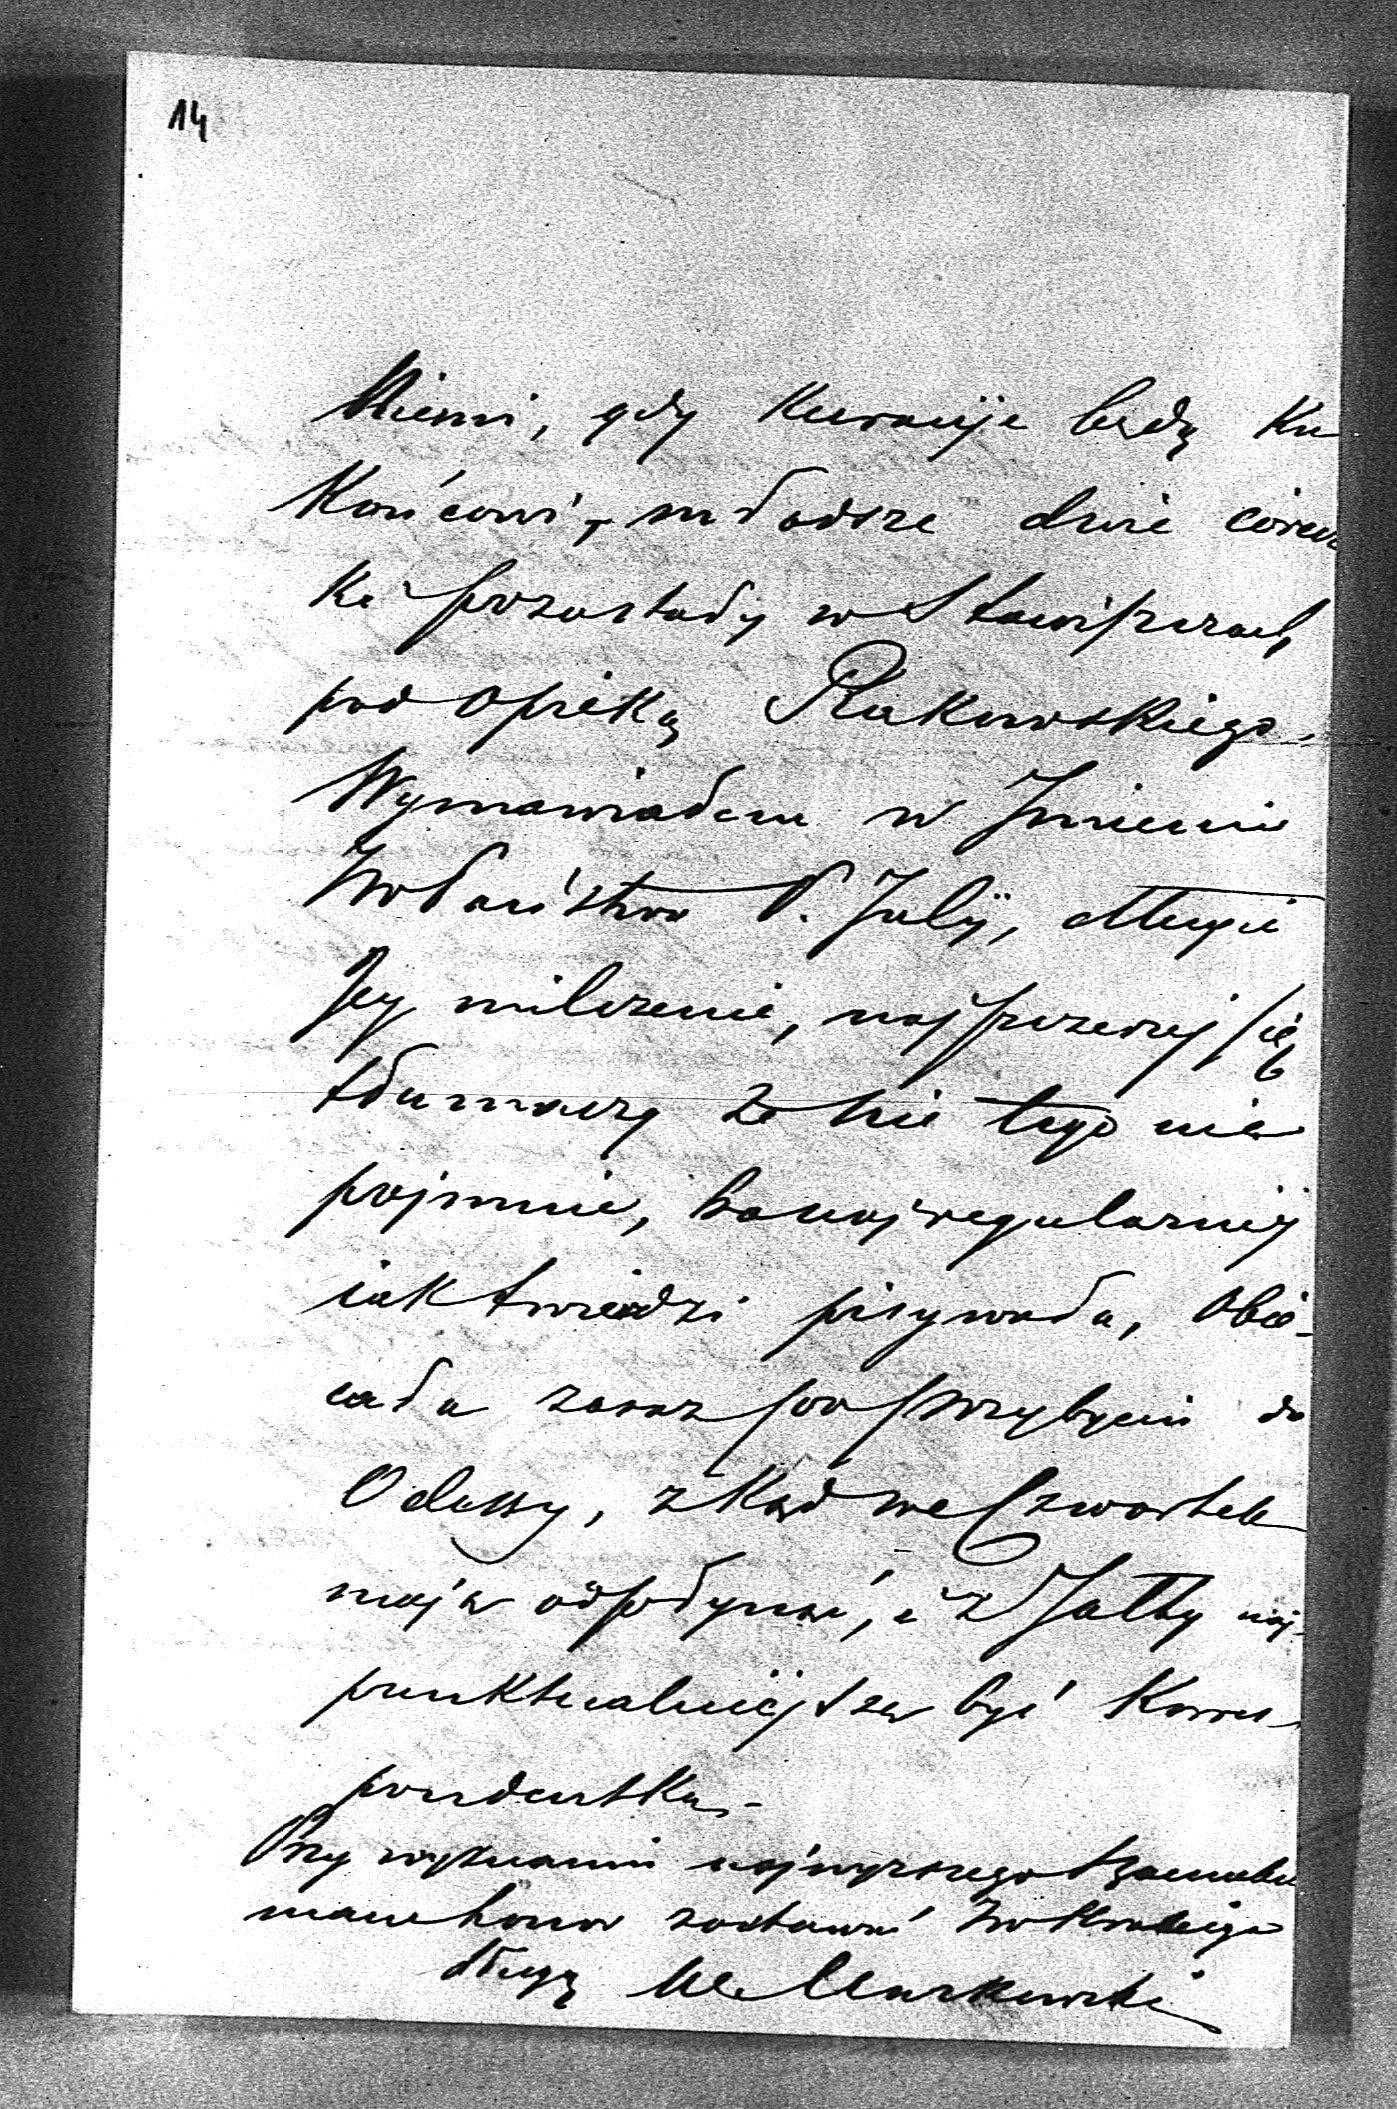 14
Niemi, gdy kuracije będą ku
końcowi, młodsze dwie córecz
ki pozostały w Stawiszczach
pod opieką Rakowskiego.
Wymawiałem w Imieniu
JW Państwa P. Julij, długie
Jey milczenie, najszczerzej się
tłumaczy że nic tego nie
pojmuie, bo najregularniej
iak twierdzi pisywała, obie-
cała zaraz po przybyciu do
Odessy, zkąd we Czwartek
mają odpłynąć, i z Jałty naj-
punktualniejszą być Korres-
pondentką.
Przy wyznaniu najwyższego szacunku
mam honor zostawać JW
sługą Markowski